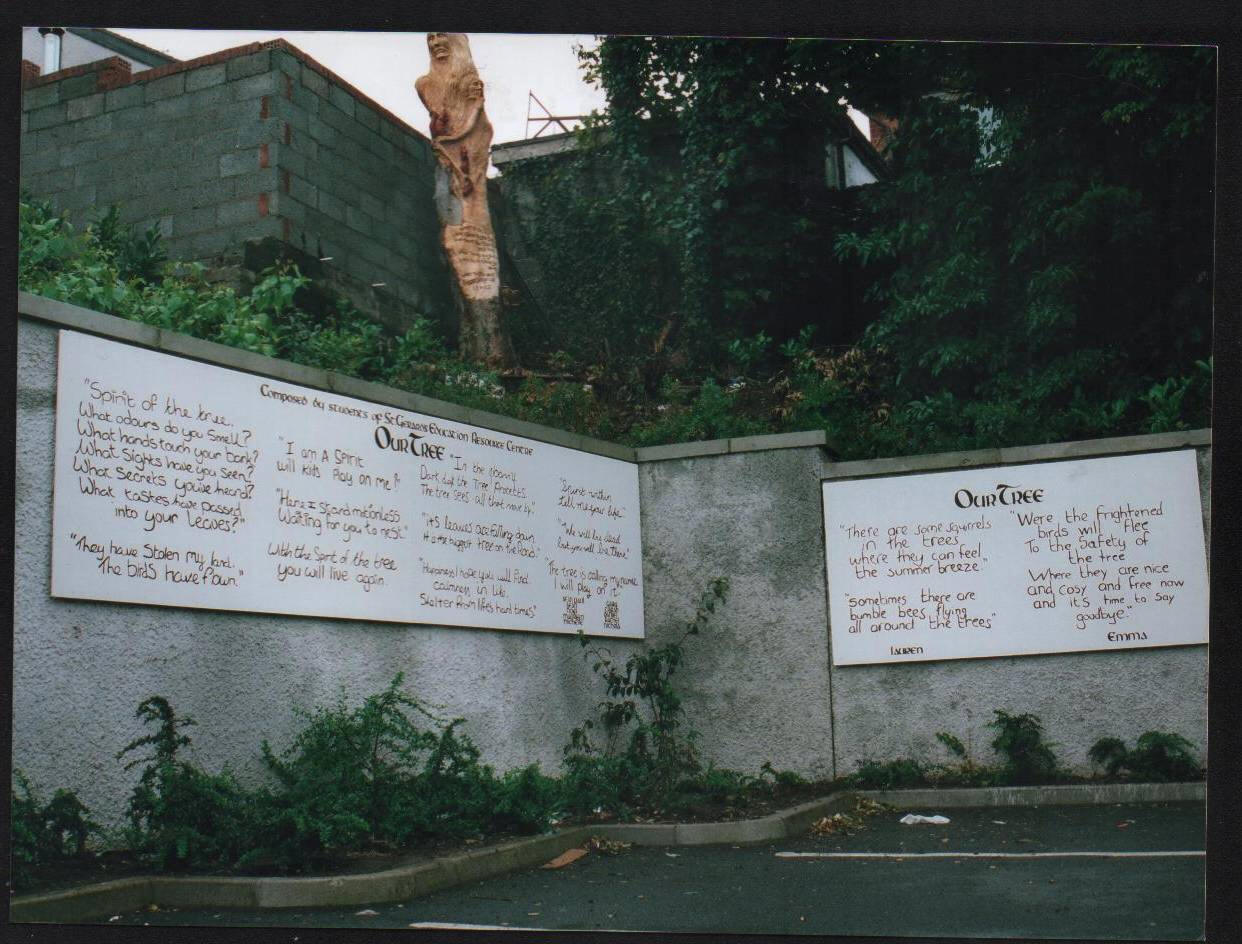 Composed by students of St Gerards Education Resource Centre
Our Tree
"Spirit of the tree.
What odours do you smell?
What hands touch your bark?
What Sights have you seen?
What Secrets you've heard?
What tastes have passed
into your leaves?"
"They have Stolen my land.
The birds have flown."
"I am A Spirit
will kids Play on me?"
"Here I stand motionless
Waiting for you to rest."
With the Spirit of the tree
you will live again.
"In the
Dark
The tree sees all that
"It's leaves are falling down
It is the biggest tree on the Road."
"Happiness I hope you will find
calmness in life.
Shelter from life's hard times"
"Spirit within
tell me your life"
"We will be dead
but you will be there"
"The tree is calling my name
I will play on it"
Our Tree
"There are some squirrels
in the trees
where they can feel
the summer breeze."
"sometimes there are
bumble bees flying
all around the trees"
lauren
"Were the frightened
birds will flee
To the safety of
the tree
Where they are nice
and cosy and free now
and it's time to say
goodbye."
Emma